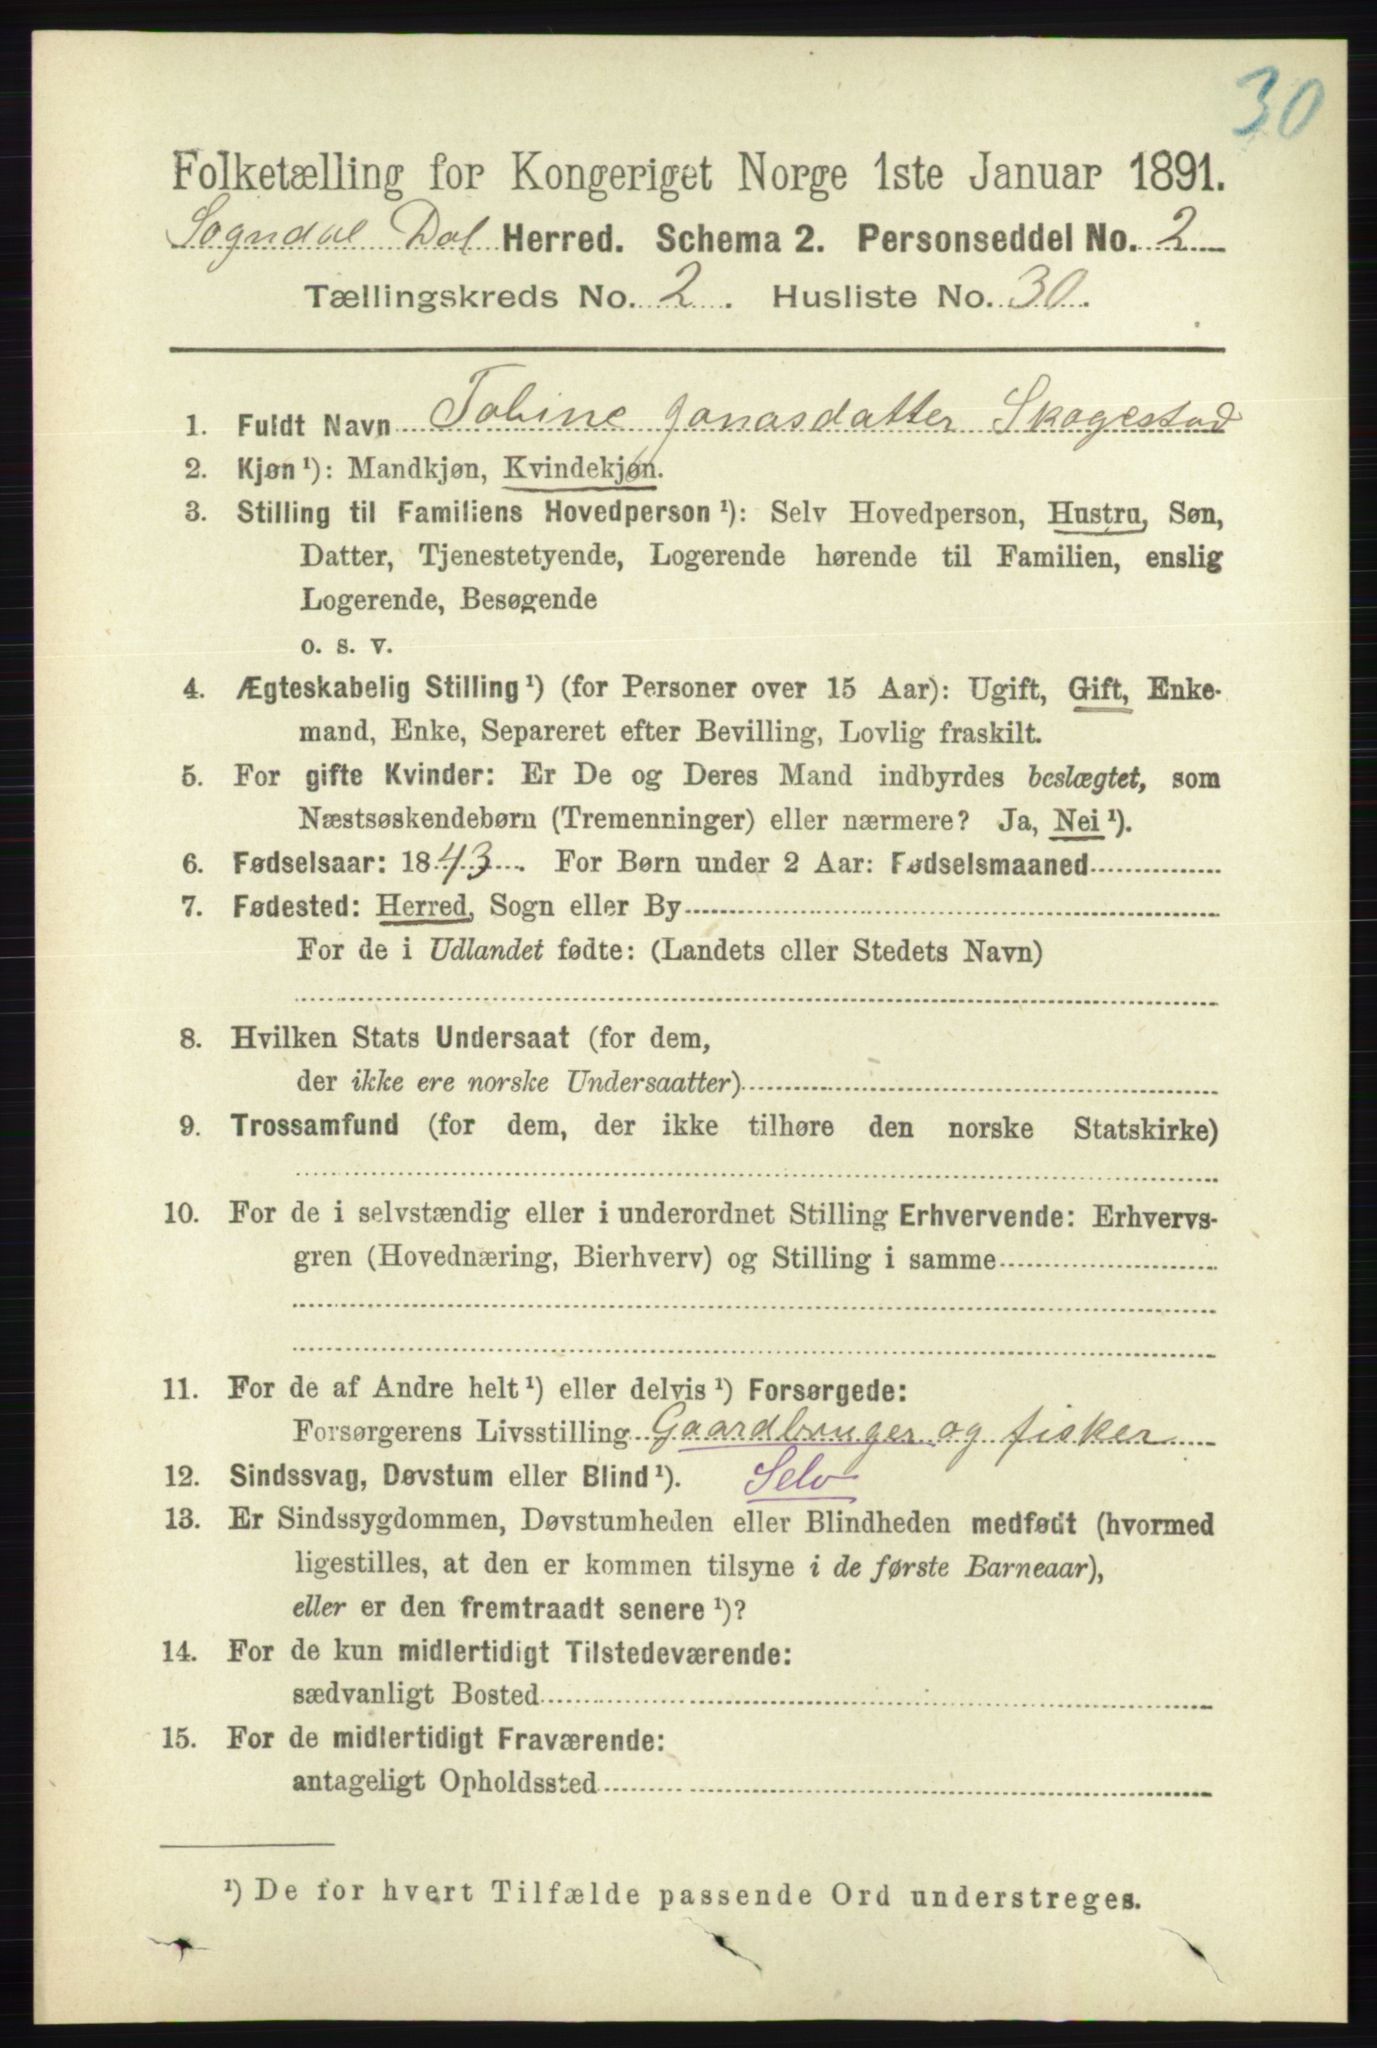 30
Folketælling for Kongeriget Norge 1ste Januar 1891.
Sogndal Dal Herred. Schema 2. Personseddel No. 2
Tællingskreds No. 2. Husliste No. 30.
1. Fuldt Navn Tobine Jonasdatter Skogestad
2. Kjøn ¹): Mandkjøn, Kvindekjøn.
3. Stilling til Familiens Hovedperson ¹): Selv Hovedperson, Hustru, Søn,
Datter, Tjenestetyende, Logerende hørende til Familien, enslig
Logerende, Besøgende
o. s. v.
4. Ægteskabelig Stilling ¹) (for Personer over 15 Aar): Ugift, Gift, Enke-
mand, Enke, Separeret efter Bevilling, Lovlig fraskilt.
5. For gifte Kvinder: Er De og Deres Mand indbyrdes beslægtet, som
Næstsøskendebørn (Tremenninger) eller nærmere? Ja, Nei ¹).
6. Fødselsaar: 1843. For Børn under 2 Aar: Fødselsmaaned
7. Fødested: Herred, Sogn eller By
For de i Udlandet fødte: (Landets eller Stedets Navn)
8. Hvilken Stats Undersaat (for dem,
der ikke ere norske Undersaatter)
9. Trossamfund (for dem, der ikke tilhøre den norske Statskirke)
10. For de i selvstændig eller i underordnet Stilling Erhvervende: Erhvervs-
gren (Hovednæring, Bierhverv) og Stilling i samme
11. For de af Andre helt ¹) eller delvis ¹) Forsørgede:
Forsørgerens Livsstilling Gaardbruger og fisker
12. Sindssvag, Døvstum eller Blind ¹). Selv
13. Er Sindssygdommen, Døvstumheden eller Blindheden medfødt (hvormed
ligestilles, at den er kommen tilsyne i de første Barneaar),
eller er den fremtraadt senere ¹)?
14. For de kun midlertidigt Tilstedeværende:
sædvanligt Bosted
15. For de midlertidigt Fraværende:
antageligt Opholdssted
¹) De for hvert Tilfælde passende Ord understreges.